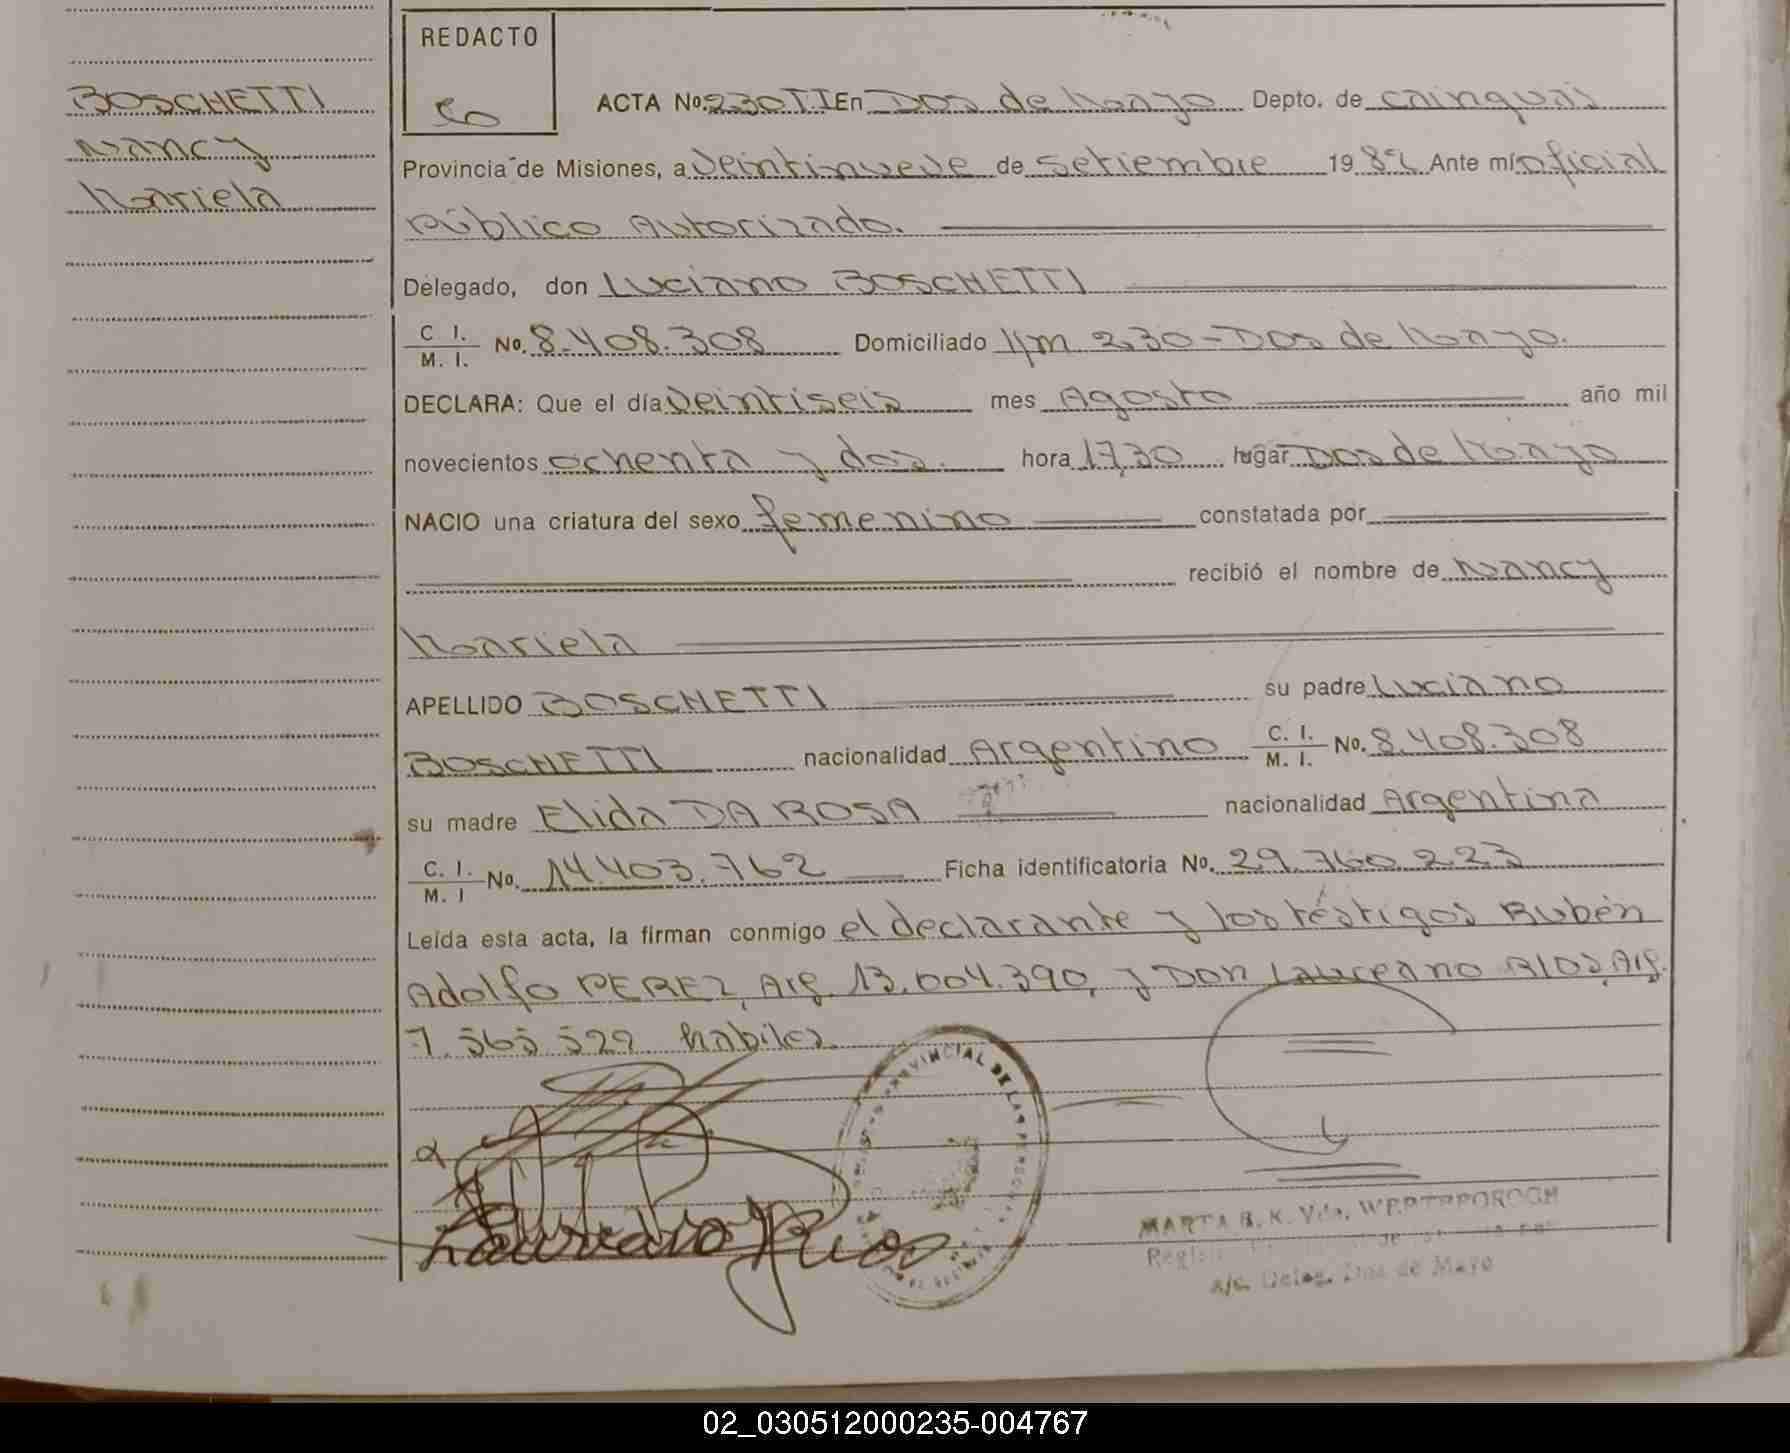 BOSCHETTI
Nancy
Mariela
REDACTO
ACTA No. 230 TI En Dos de Mayo Depto. de Cainguás
Provincia de Misiones, a veintinueve de setiembre 1982 Ante mí oficial
Público Autorizado.
Delegado, don Luciano BOSCHETTI
C. I. M. I. No. 8.408.308 Domiciliado Km 230 - Dos de Mayo.
DECLARA: Que el día veintiseis mes Agosto año mil
novecientos ochenta y dos. hora 17,30 lugar Dos de Mayo
NACIO una criatura del sexo femenino constatada por
recibió el nombre de Nancy
Mariela
APELLIDO BOSCHETTI su padre Luciano
BOSCHETTI nacionalidad Argentino C. I. M. I. No. 8.408.308
su madre Elida DA ROSA nacionalidad Argentina
C. I. M. I No. 14.403.762 Ficha identificatoria No. 29.760.223
Leída esta acta, la firman conmigo el declarante y los téstigos Rubén
Adolfo PEREZ, Arg. 13.004.390, y Don Laureano RIOS, Arg.
7.565.529 habiles.
PROVINCIAL DE LAS PERSONAS
Laureano Rios
MARTA B. K. Vda.
a/c. Deleg. Dos de Mayo
02_030512000235-004767